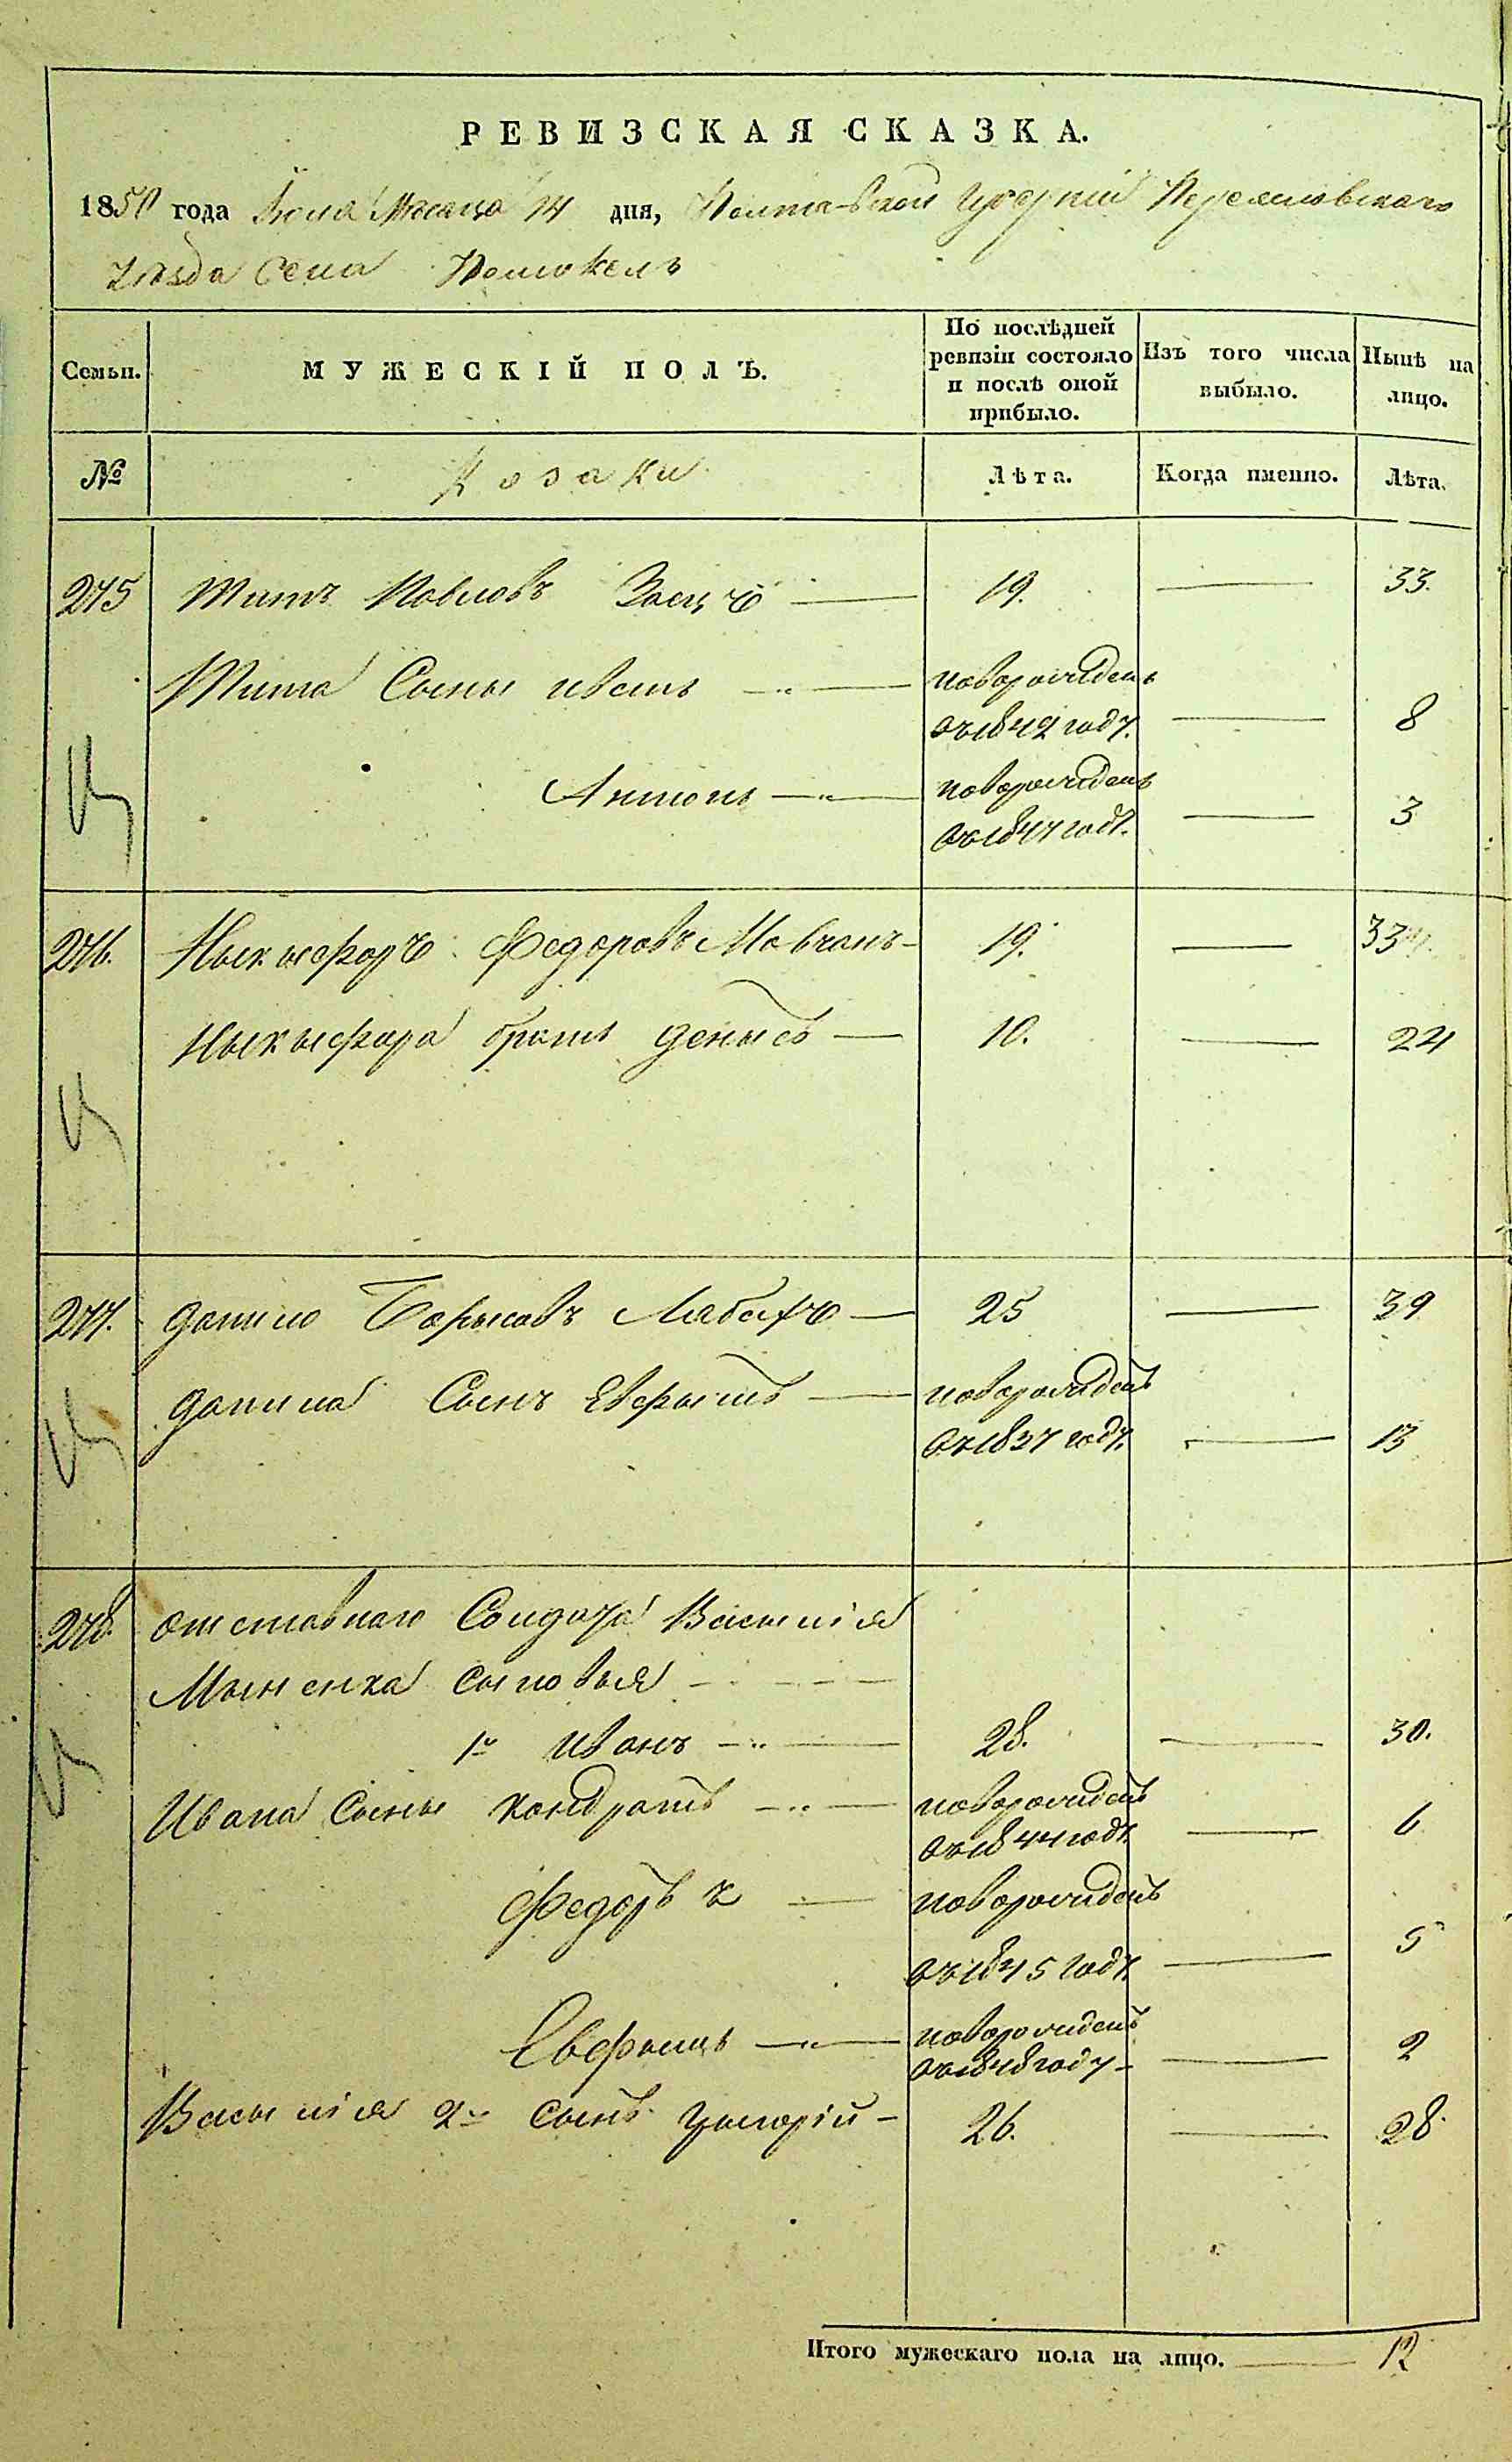 РЕВИЗСКАЯ СКАЗКА.
1850 года Июля Месяца 14 дня, Полтавской Губерніи Переяславскаго
Уѣзда Села Помоклъ
Семьи. МУЖЕСКІЙ ПОЛЪ. По послѣдней ревизіи состояло и послѣ оной прибыло. Изъ того числа выбыло. Нынѣ на лицо.
№ Козаки Лѣта. Когда именно. Лѣта.
275 Титъ Павловъ Заецъ 19. 33.
Тита Сыны Иванъ новорожденъ
въ 1842 году. 8
Антонъ новорожденъ
въ 1847 году. 3
276. Ныкыфоръ Федоровъ Мовчанъ 19. 33
Ныкыфора братъ Денысъ 10. 24
277. Данило Борысовъ 25 39
Данила Сынъ новорожденъ
въ 1837 году. 13
278. Отставнаго Солдата Васылія
сыновья
1й Иванъ 28. 30.
Ивана Сыны Кондратъ новорожденъ
въ 1844 году 6
Федоръ новорожденъ
въ 1845 году 5
новорожденъ
въ 1848 году 2
Васылія 2й сынъ Григорій 26. 28.
Итого мужескаго пола на лицо. 12